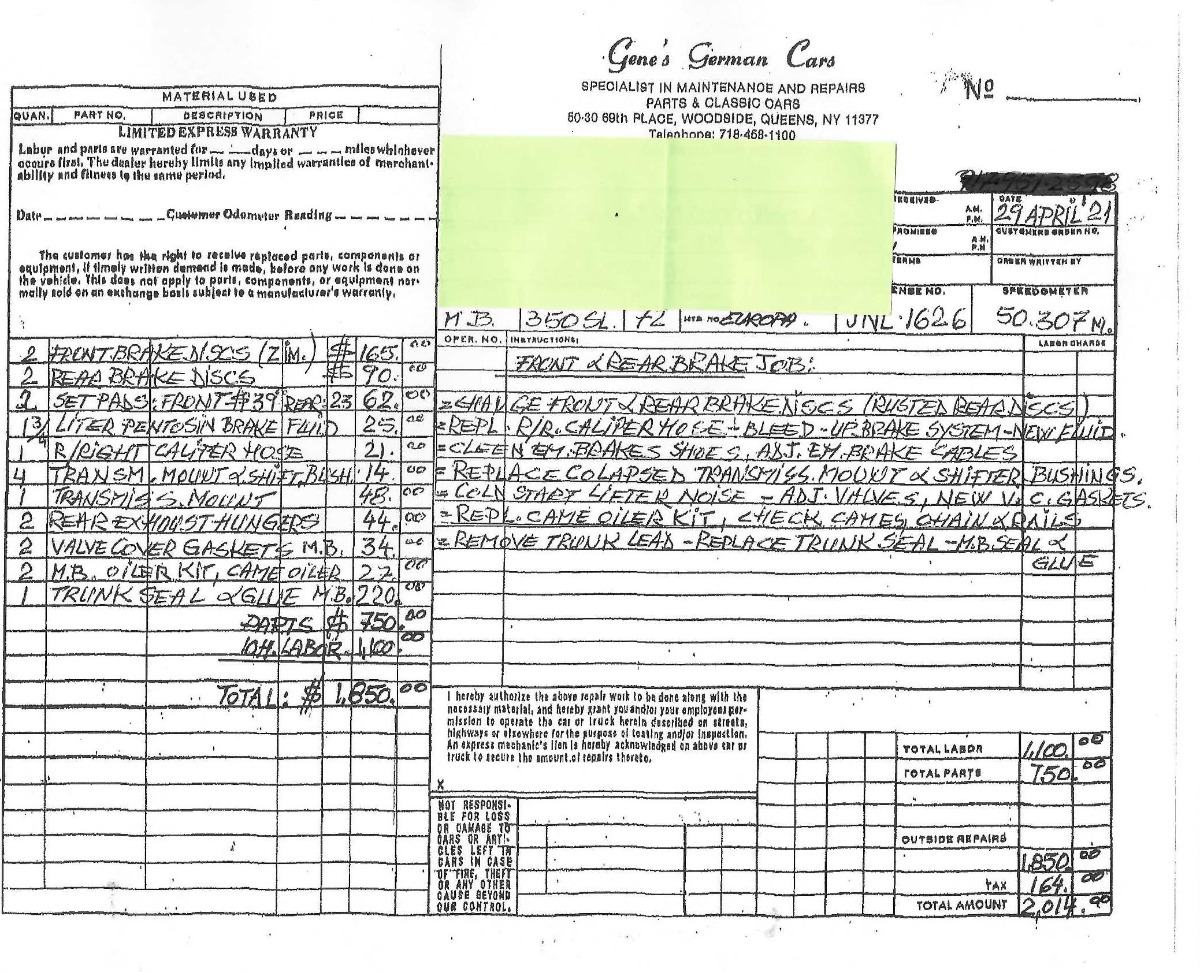 Gene's German Cars
SPECIALIST IN MAINTENANCE AND REPAIRS
PARTS & CLASSIC CARS
50-30 69th PLACE, WOODSIDE, QUEENS, NY 11377
Telephone: 718-458-1100
No
MATERIAL USED
QUAN. PART NO. DESCRIPTION PRICE
LIMITED EXPRESS WARRANTY
Labor and parts are warranted for days or miles whichever
occurs first. The dealer hereby limits any implied warranties of merchant-
ability and fitness to the same period.
Date Customer Odometer Reading
The customer has the right to receive replaced parts, components or
equipment, if timely written demand is made, before any work is done on
the vehicle. This does not apply to parts, components, or equipment nor-
mally sold on an exchange basis subject to a manufacturer's warranty.
2 FRONT BRAKE DISCS (ZIM.) $ 165.00
2 REAR BRAKE DISCS $ 90.00
2 SET PADS: FRONT $39 REAR: 23 62.00
1 3/4 LITER PENTOSIN BRAKE FLUID 25.00
1 R/RIGHT CALIPER HOSE 21.00
4 TRANSM. MOUNT & SHIFT, BUSH. 14.00
1 TRANSMISS. MOUNT 48.00
2 REAR EXHOUST HUNGERS 44.00
2 VALVE COVER GASKETS M.B. 34.00
2 M.B. OILER KIT, CAME OILER 27.00
1 TRUNK SEAL & GLUE M.B. 220.00
PARTS $ 750.00
10H. LABOR. 1,100.00
TOTAL: $ 1,850.00
RECEIVED A.M. P.M.
DATE
29 APRIL '21
PROMISED A.M. P.M
CUSTOMERS ORDER NO.
TERMS
ORDER WRITTEN BY
ENSE NO. SPEEDOMETER
M.B. 350SL. 72 MTR NO. EUROPA. JNL·1626 50.307 Mi.
OPER. NO. INSTRUCTIONS: LABOR CHARGE
FRONT & REAR BRAKE JOB:
=CHANGE FRONT & REAR BRAKE DISCS (RUSTED REAR DISCS)
=REPL. R/R. CALIPER HOSE - BLEED - UP BRAKE SYSTEM - NEW FLUID.
=CLEEN EM. BRAKES SHOES, ADJ. EM. BRAKE CABLES
=REPLACE COLAPSED TRANSMISS. MOUNT & SHIFTER BUSHINGS.
=COLD START LIFTER NOISE - ADJ. VALVES, NEW V. C. GASKETS.
=REPL. CAME OILER KIT, CHECK CAMES, CHAIN & RAILS
=REMOVE TRUNK LEAD - REPLACE TRUNK SEAL - M.B. SEAL &
GLUE
I hereby authorize the above repair work to be done along with the
necessary material, and hereby grant you and/or your employees per-
mission to operate the car or truck herein described on streets,
highways or elsewhere for the purpose of testing and/or inspection.
An express mechanic's lien is hereby acknowledged on above car or
truck to secure the amount of repairs thereto.
X
NOT RESPONSI-
BLE FOR LOSS
OR DAMAGE TO
CARS OR ARTI-
CLES LEFT IN
CARS IN CASE
OF FIRE, THEFT
OR ANY OTHER
CAUSE BEYOND
OUR CONTROL.
TOTAL LABOR 1,100.00
TOTAL PARTS 750.00
OUTSIDE REPAIRS
1,850.00
TAX 164.00
TOTAL AMOUNT 2,014.00